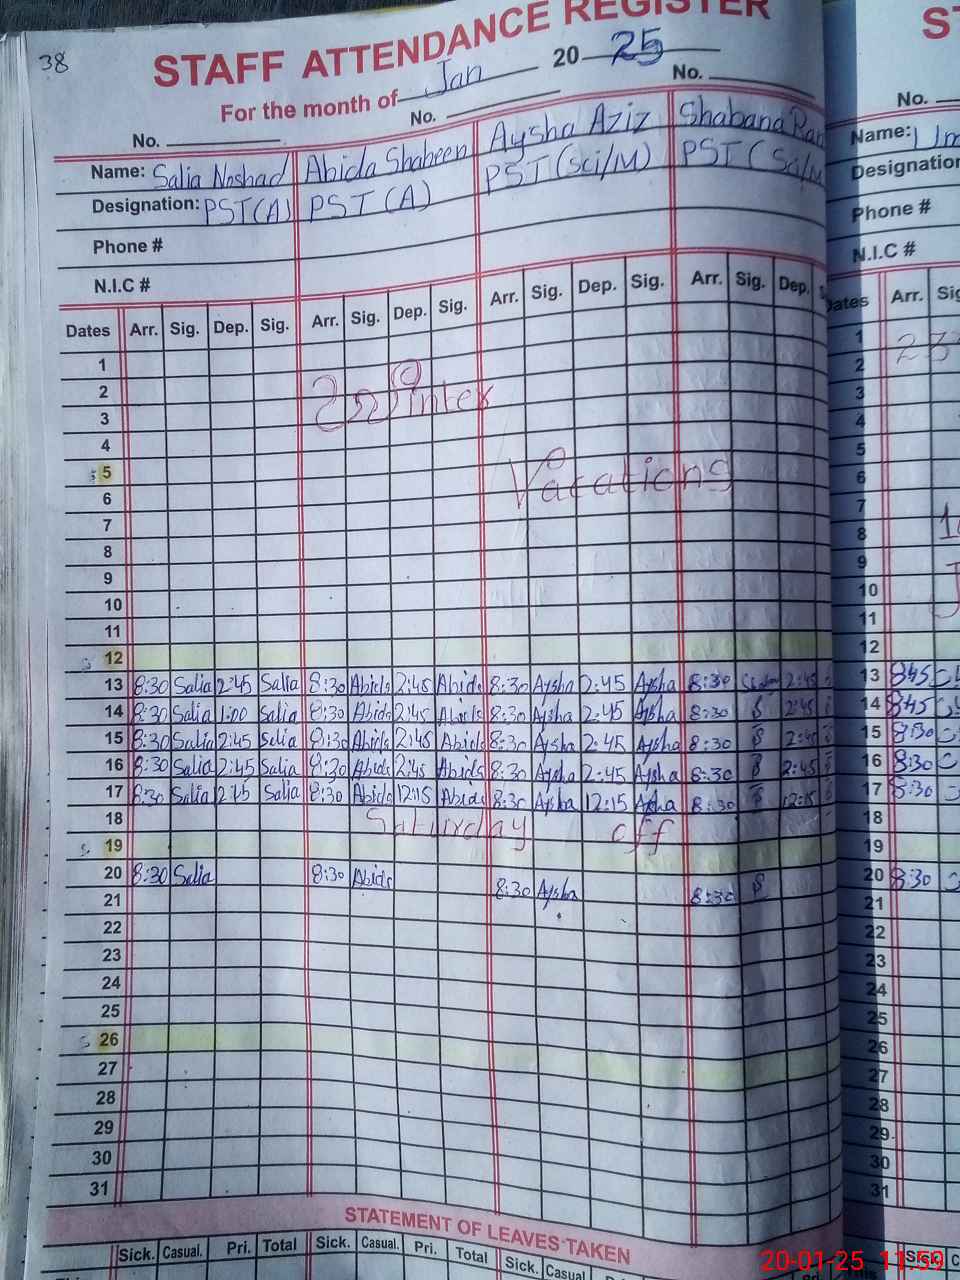 38
STAFF ATTENDANCE REGISTER
For the month of Jan 20 25
No. No. No.
Name: Salia Noshad Abida Shaheen Aysha Aziz Shabana
Designation: PST(A) PST (A) PST (Sci/M) PST (Sci/M
Phone #
N.I.C #
Dates Arr. Sig. Dep. Sig. Arr. Sig. Dep. Sig. Arr. Sig. Dep. Sig. Arr. Sig. Dep.
1
2 Winter
3
4
5 Vacations
6
7
8
9
10
11
12
13 8:30 Salia 2:45 Salia 8:30 Abida 2:45 Abida 8:30 Aysha 2:45 Aysha 8:30 2:45
14 8:30 Salia 1:00 Salia 8:30 Abida 2:45 Abida 8:30 Aysha 2:45 Aysha 8:30 2:45
15 8:30 Salia 2:45 Salia 8:30 Abida 2:45 Abida 8:30 Aysha 2:45 Aysha 8:30
16 8:30 Salia 2:45 Salia 8:30 Abida 2:45 Abida 8:30 Aysha 2:45 Aysha 8:30 2:45
17 8:30 Salia Salia 8:30 Abida 12:15 Abida 8:30 Aysha 12:15 Aysha 8:30 12:15
18 Saturday off
19
20 8:30 Salia 8:30 Abida 8:30 Aysha 8:30
21
22
23
24
25
26
27
28
29
30
31
STATEMENT OF LEAVES TAKEN
Sick. Casual. Pri. Total Sick. Casual. Pri. Total Sick. Casual
No.
Name:
Designation
Phone #
N.I.C #
Dates Arr.
1
2
3
4
5
6
7
8
9
10
11
12
13 8:45
14 8:45
15 8:30
16 8:30
17 8:30
18
19
20 8:30
21
22
23
24
25
26
27
28
29
30
31
Sick.
20-01-25 11:59